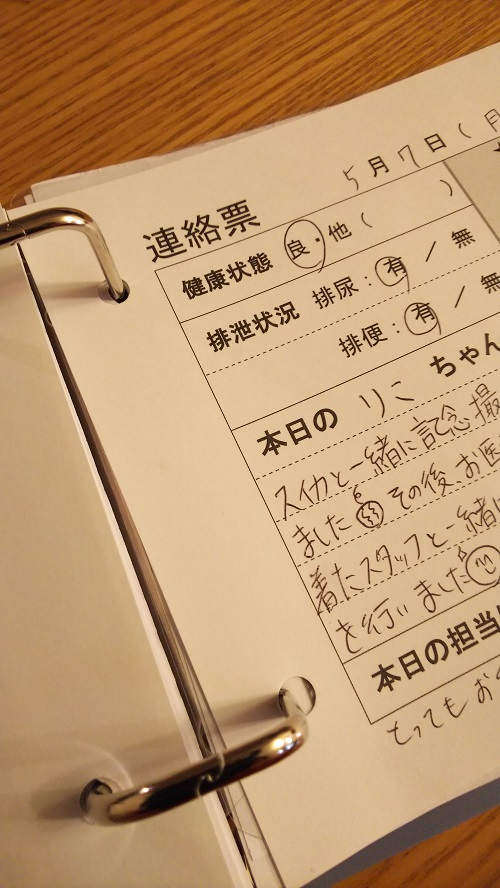 連絡票
5月7日(月
健康状態 良・他( )
排泄状況 排尿:有 / 無
排便:有 / 無
本日の りこ ちゃん
スイカと一緒に記念撮
ました その後お医
着たスタッフと一緒に
を行いました
本日の担当
とっても お